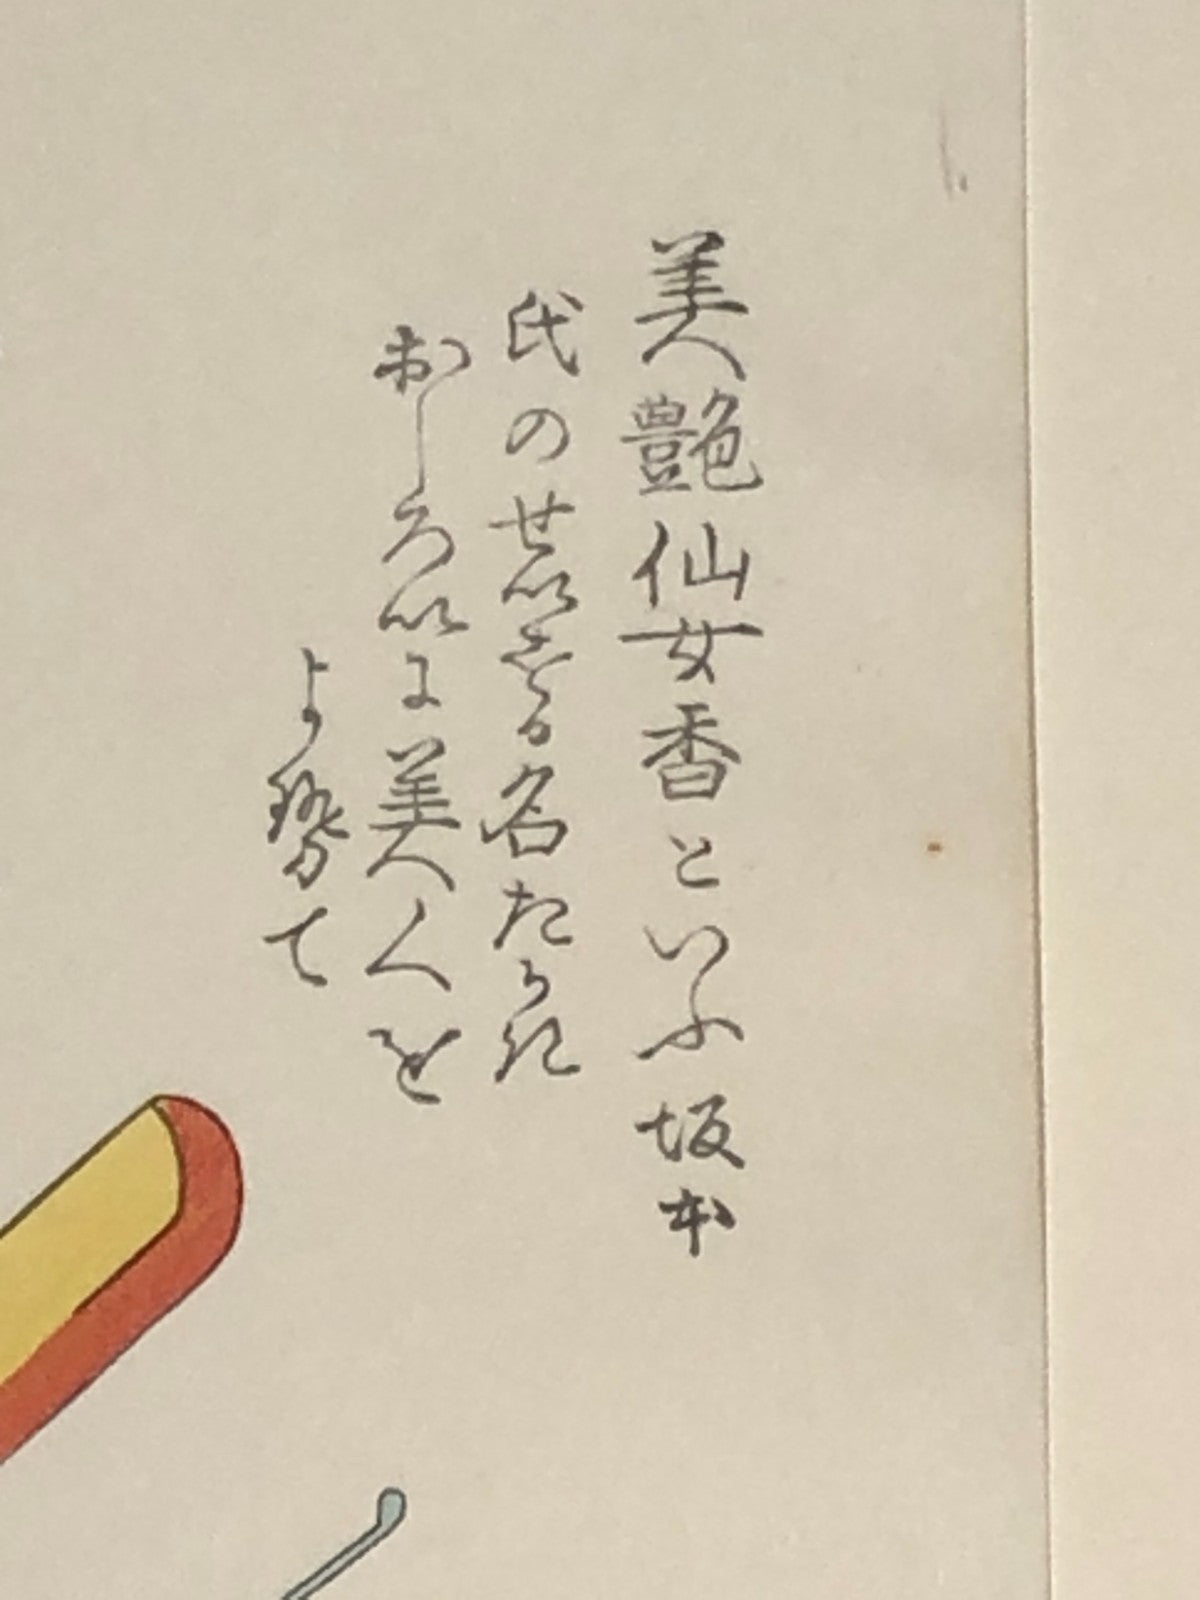 美人艶仙女香といふ坂本
氏のせいする名たかき
おしろいに美人を
よせて